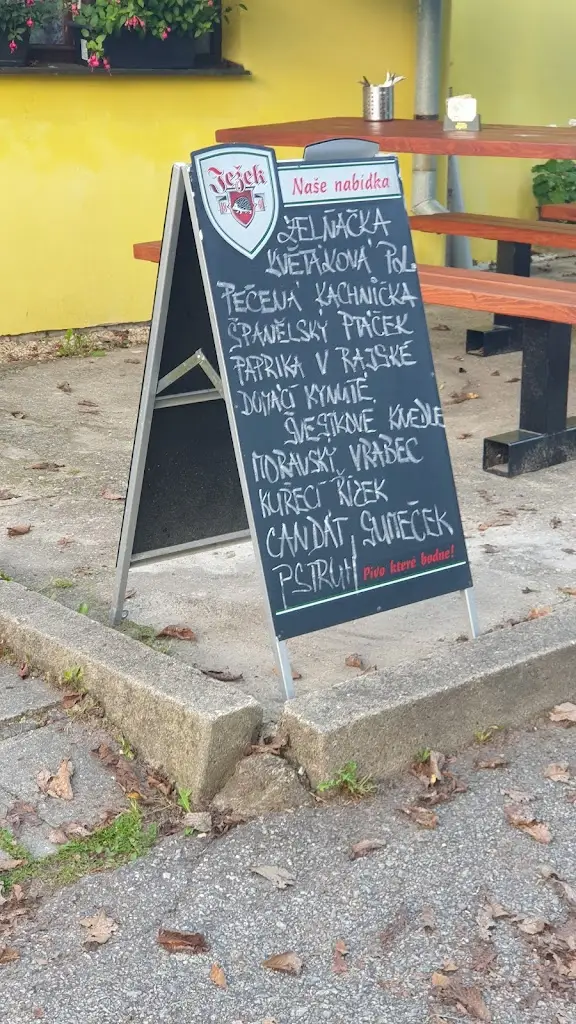 Ježek
Naše nabídka
ZELŇAČKA
KVĚTÁKOVÁ POL.
PEČENÁ KACHNIČKA
ŠPANĚLSKÝ PTÁČEK
PAPRIKA V RAJSKÉ
DOMÁCÍ KYNUTÉ
ŠVESTKOVÉ KNEDLE
MORAVSKÝ VRABEC
KUŘECÍ ŘÍZEK
CANDÁT SUMEČEK
PSTRUH
Pivo které bodne!